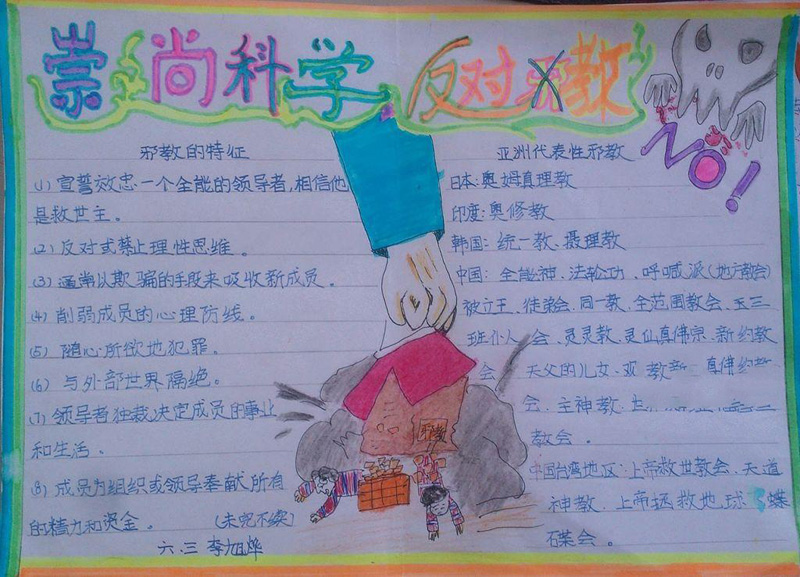 崇尚科学 反对邪教
NO!
邪教的特征
(1) 宣誓效忠一个全能的领导者,相信他
是救世主。
(2) 反对或禁止理性思维。
(3) 通常以欺骗的手段来吸收新成员。
(4) 削弱成员的心理防线。
(5) 随心所欲地犯罪。
(6) 与外部世界隔绝。
(7) 领导者独裁决定成员的事业
和生活。
(8) 成员为组织或领导奉献所有
的精力和资金。 (未完不续)
六.三 李旭烨
邪教
亚洲代表性邪教
日本:奥姆真理教
印度:奥修教
韩国:统一教、摄理教
中国:全能神、法轮功、呼喊派(地方教会)
被立王、徒弟会、同一教、全范围教会、三
班仆人会、灵灵教、灵仙真佛宗、新约教
会、天父的儿女、教 真佛
会、主神教、
教会。
中国台湾地区:上帝救世教会、天道
神教、上帝拯救地球 蝶
碟会。